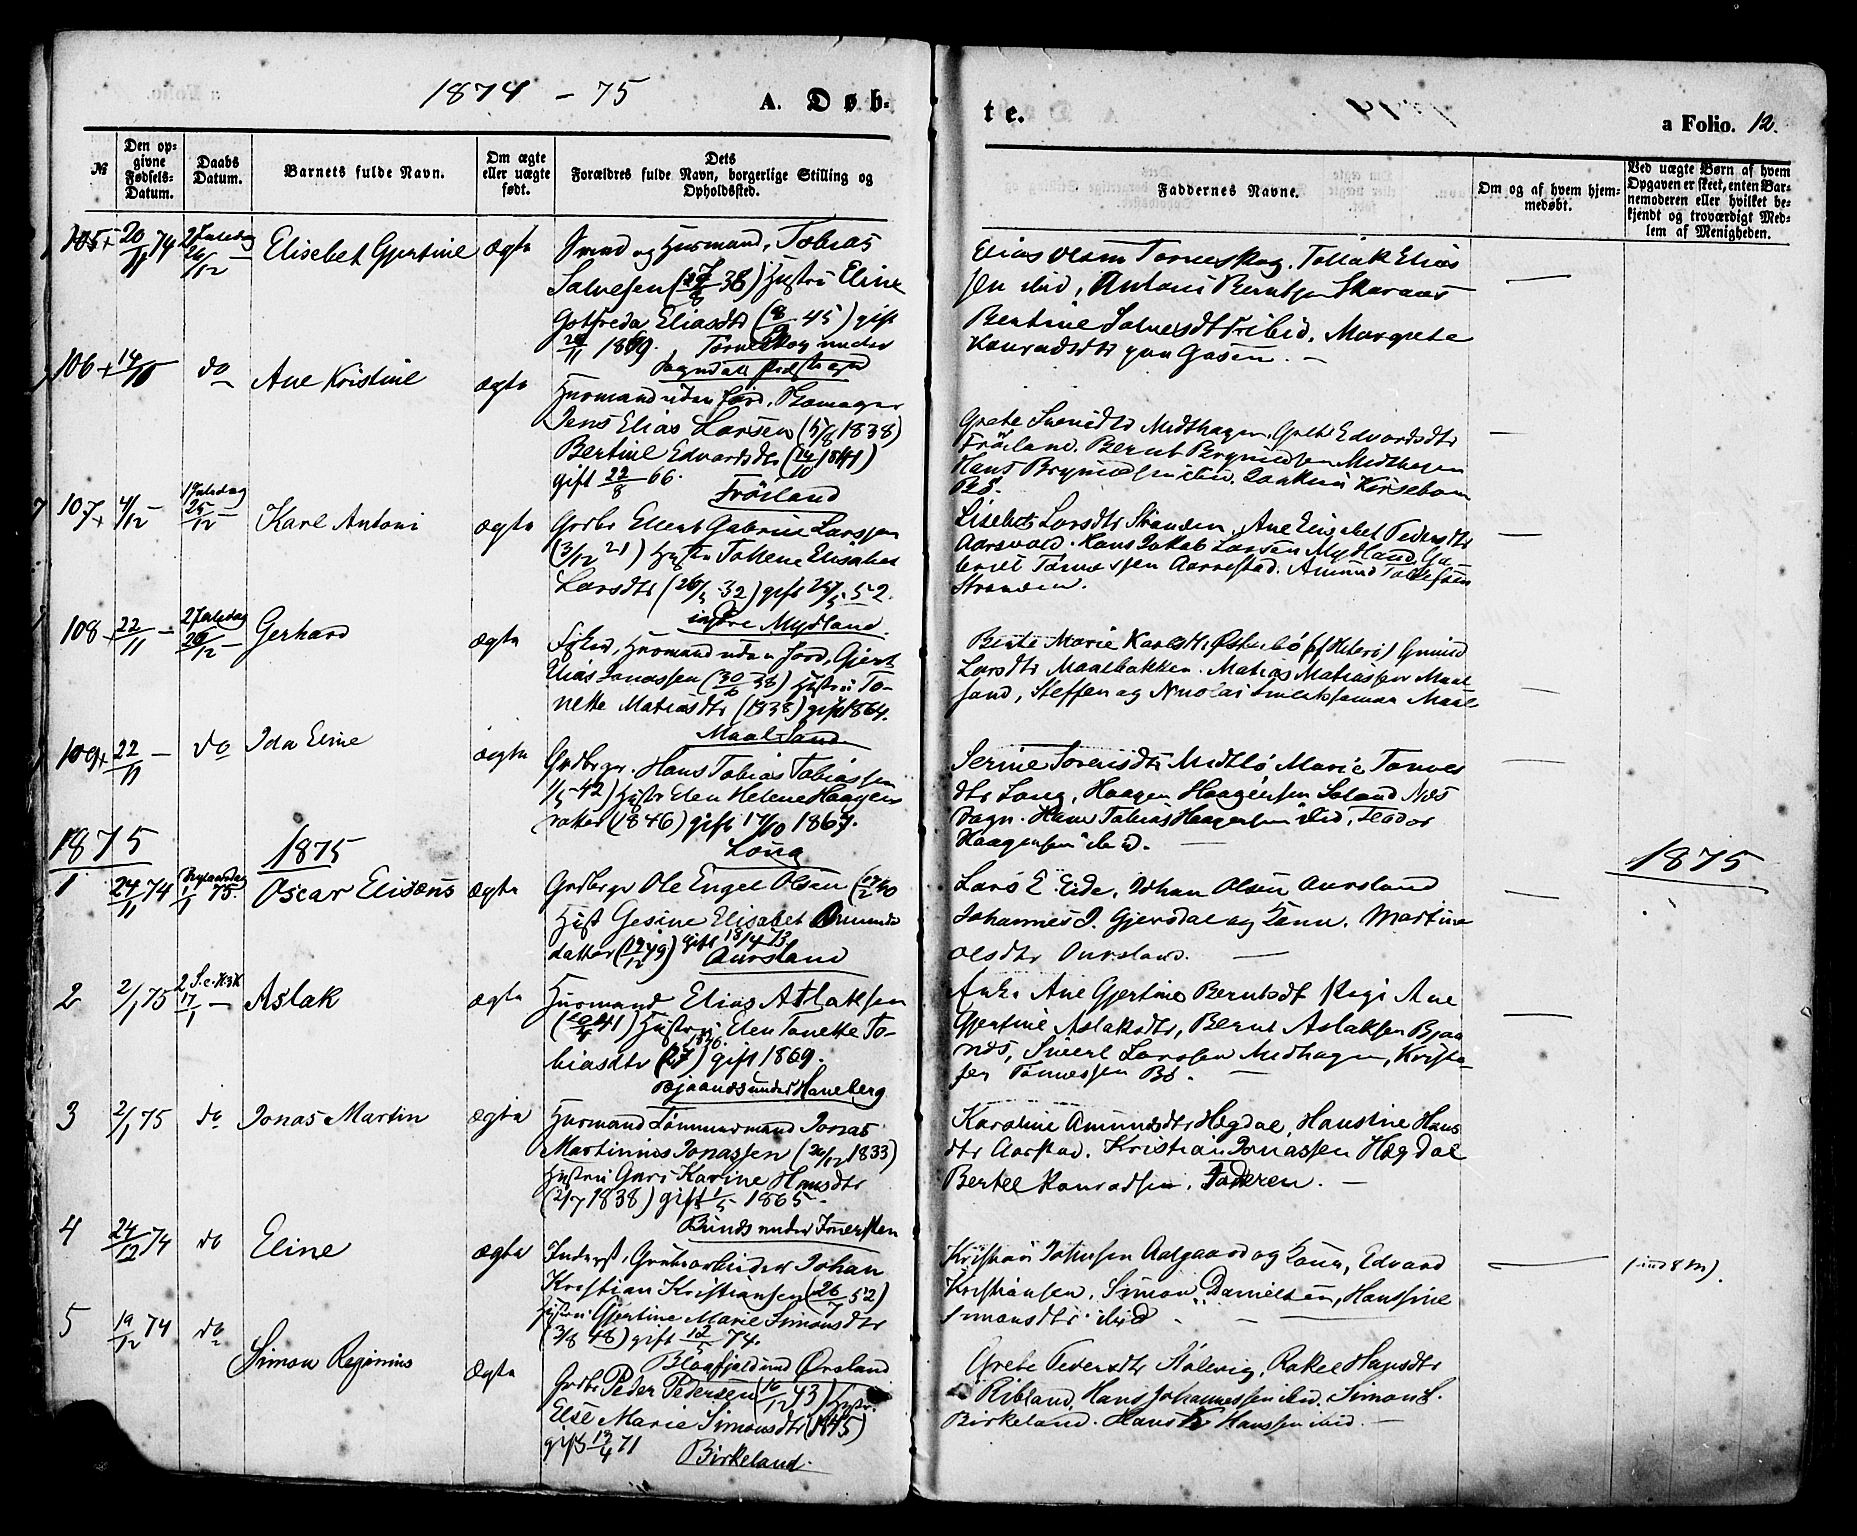 1874 - 75
A. Døb-
te.
a Folio. 12.
№
Den opgivne Fødsels-Datum.
Daabs Datum.
Barnets fulde Navn.
Om ægte eller uægte født.
Dets Forældres fulde Navn, borgerlige Stilling og Opholdssted.
Faddernes Navne.
Om og af hvem hjemmedøbt.
Ved uægte Børn af hvem Opgaven er skeet, enten Barnemoderen eller hvilket bekjendt og troværdigt Medlem af Menigheden.
105+ 20/11 74 2 Juledag 26/12 Elisebet Gjertine ægte og Husmand, Tobias
Salvesen Hustru Eline
Gotfreda Eliasdtr (8/9 45) gift
1869. Tørneskog under
Sogndals Præstegd
Elias Olsen Tørneskog, Tollak Elias
sen ibid, Antoni Berntsen Skaraas
Bertine Salvesdtr ibid, Margrete
Konradsdtr
106+ 14/10 do Ane Kristine ægte Husmand uden Jord, Skomager
Jens Elias Larsen (5/8 1838)
Bertine Edvardsdtr (14/10 1841)
gift 22/8 66.
Frøiland
Grete Midthagen, Grete Edvardsdtr
Frøiland, Bernt Brynildsen Midthagen
Hans Brynildsen ibid, Kirsebom
Bø.
107+ 4/12 1 Juledag 25/12 Karl Antoni ægte Grdbr Ellert Gabriel Larssen
(3/12 21) Hustru Tollene Elisabet
Larsdtr (26/5 32) gift 52.
indre Mydland.
Lisebet Larsdtr Stranden, Ane Elisebet Pedersdtr
Aarsvold. Hans Jakob Larsen Mydland, Ga
briel Tønnessen Aarrestad. Amund Tollefsen
Stranden.
108 22/11 2 Juledag 26/12 Gerhard ægte Fisker, Husmand uden Jord, Gjert
Elias Jonassen (30/6 38) Hustru To-
nette Matiasdtr (1838) gift 1864.
Maalsand
Berte Marie Karlsdtr Østenbø
Larsdtr Maalbakken. Matias Matiassen Maal
sand, Steffen og Nicolai Maal
109+ 22/11 do Ida Eline ægte Grdbrger. Hans Tobias Tobiassen
1/5 42) Hustr Elen Helene Haagens
datter (1846) gift 17/10 1867.
Long
Serine Sørensdtr Midtbø Marie Tønnes
dtr Long, Haagen Haagensen Soland Næs
Sogn. Hans Tobias Haagensen ibid, Teodor
Haagensen ibid.
1875 1875 1875
1 24/11 74 Nytaarsdag 1/1 75. Oscar Elisæus ægte Grdbrgr Ole Engel Olsen (17/2 40
Hust Gesine Elisabet Omunds
datter (19/12 49) gift 13/4 73
Aursland
Lars E. Eide, Johan Olsen Aursland
Johannes J. Gjersdal og Kone. Martine
Olsdtr Aursland.
2 2/1 75 2 S.e.H3K 17/1 Aslak ægte Husmand Elias Aslaksen
Hustru Elen Tonette To-
biasdtr gift 1869.
Bjaanæs under Haneberg
Enke Ane Gjertine Berntsdt Ane
Gjertine Aslaksdtr, Bernt Aslaksen Bjaa
næs, Sivert Larssen Midhagen, Kristo
fer Tønnessen Bø.
3 2/1 75 do Jonas Martin ægte Husmand Tømmermand Jonas
Martinius Jonassen (20/12 1833)
Hustru Guri Karine Hansdtr
(2/7 1838) gift 1/5 1865.
Karoline Amundsdtr Hægdal, Hansine Hans
dtr Aarstad. Kristian Jonassen Hægdal
Bertel Konradsen. Faderen.
4 24/12 74 do Eline ægte Inderst, Grubearbeider Johan
Kristian Kristiansen (26/7 52)
Hustru Gjertine Marie Simonsdtr
(3/8 48) gift 12/5 74.
Blaafjeld und Ørsland
Kristian Johnsen Aalgaard og Kone, Edvard
Kristiansen, Simon Danielsen, Hansine
Simonsdtr ibid
5 19/12 74 do Simon Reginius ægte Grdbr Peder Pedersen (16/12 43) Hustr.
Else Marie Simonsdtr (1845)
gift 13/4 71
Birkeland.
Grete Pedersdtr Stølevig, Rakel Hansdtr
Ribland, Hans Johannessen ibid. Simon S.
Birkeland. Hans Hanssen ibid.